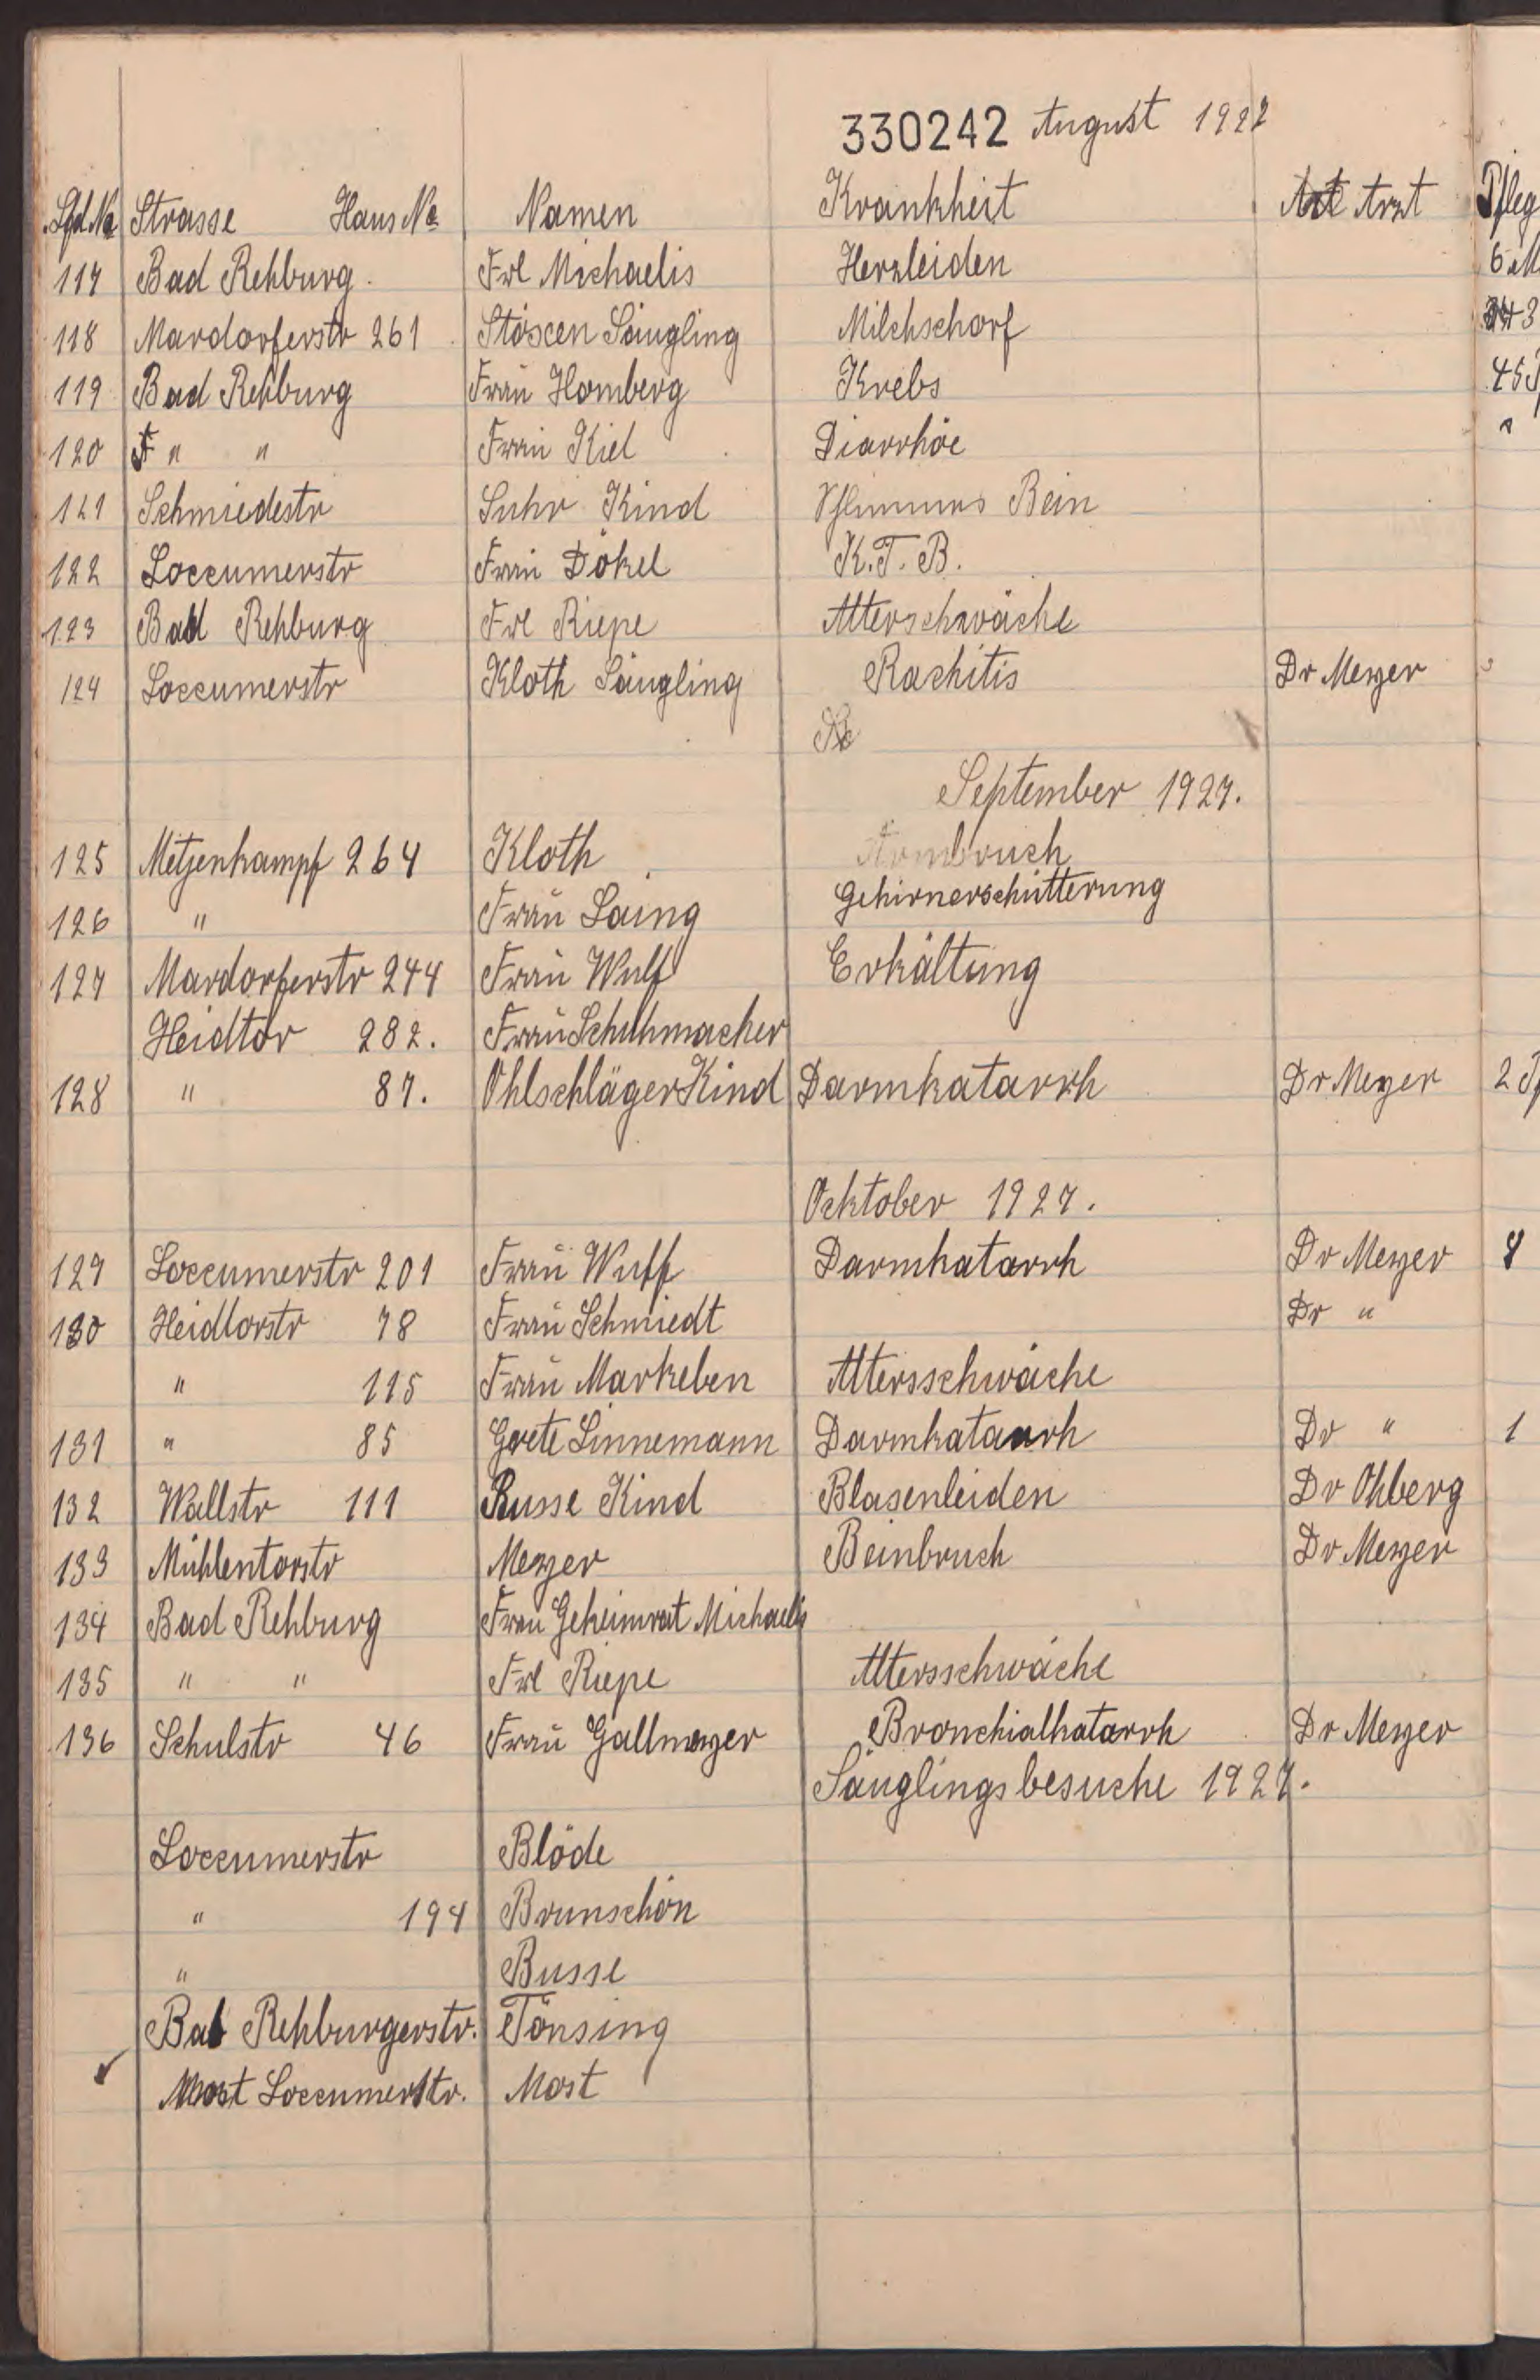 330242 August 1927
Lfd No Strasse Haus No Namen Krankheit Arzt Pfleg
117 Bad Rehburg. Frl Michaelis Herzleiden
118 Mardorferstr 261 Stöxen Säugling Milchschorf
119 Bad Rehburg Frau Homberg Krebs
120 " " Frau Kiel Diarrhöe
121 Schmiedestr Suhr Kind Bein
122 Loccumerstr Frau Dökel K.T.B.
123 Bad Rehburg Frl Riepe Alterschwäche
124 Loccumerstr Kloth Säugling Rachitis Dr Meyer
September 1927.
125 Metjenkampf 264 Kloth Armbruch
126 " Frau Laing Gehirnerschütterung
127 Mardorferstr 244 Frau Wulf Erkältung
Heidtor 282. Frau Schuhmacher
128 " 87. Ohlschläger Kind Darmkatarrh Dr Meyer 2
Ocktober 1927.
129 Loccumerstr 201 Frau Wulff Darmkatarrh Dr Meyer 8
130 Heidtorstr 78 Frau Schmiedt Dr "
" 115 Frau Markeben Altersschwäche
131 " 85 Grete Linnemann Darmkatarrh Dr " 1
132 Wallstr 111 Russe Kind Blasenleiden Dr Ohberg
133 Mühlentorstr Meyer Beinbruch Dr Meyer
134 Bad Rehburg Frau Geheimrat Michaelis
135 " " Frl Riepe Altersschwäche
136 Schulstr 46 Frau Gallmeyer Bronchialkatarrh Dr Meyer
Säuglingsbesuche 1927.
Loccumerstr Blöde
" 194 Brunschön
" Busse
Bad Rehburgerstr. Tönsing
Most Loccumerstr. Most